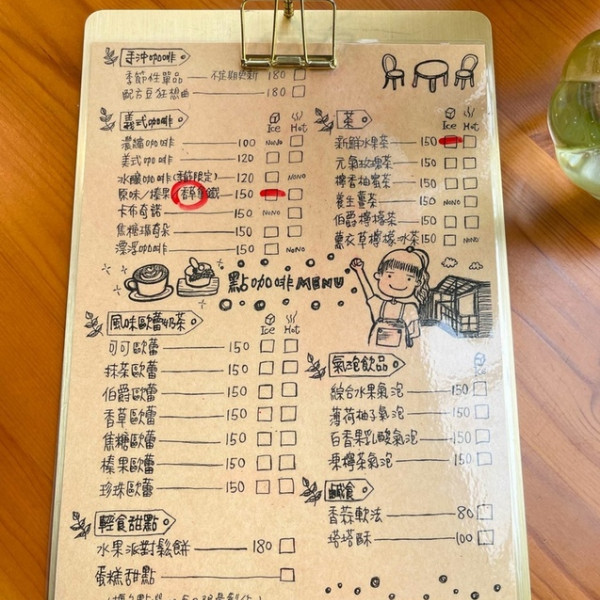 手沖咖啡
季節性單品 不定期更新 180
配方豆狂想曲 180
義式咖啡
Ice Hot
濃縮咖啡 NONO 100
美式咖啡 120
冰釀咖啡(季節限定) 120 NINO
原味/榛果/香草拿鐵 150
卡布奇諾 150 NONO
焦糖瑪奇朵 150
漂浮咖啡 150 NONO
茶
Ice Hot
新鮮水果茶 150
元氣玫瑰茶 150
檸香柚蜜茶 150
養生薑茶 150 NONO
伯爵檸檬茶 150
薰衣草檸檬冰茶 150 NINO
點咖啡 MENU
風味歐蕾奶茶
Ice Hot
可可歐蕾 150
抹茶歐蕾 150
伯爵歐蕾 150
香草歐蕾 150
焦糖歐蕾 150
榛果歐蕾 150
珍珠歐蕾 150
氣泡飲品
Ice
綜合水果氣泡 150
薄荷柚子氣泡 150
百香果乳酸氣泡 150
果檸茶氣泡 150
鹹食
香蒜軟法 80
塔塔酥 100
輕食甜點
水果派對鬆餅 180
蛋糕甜點